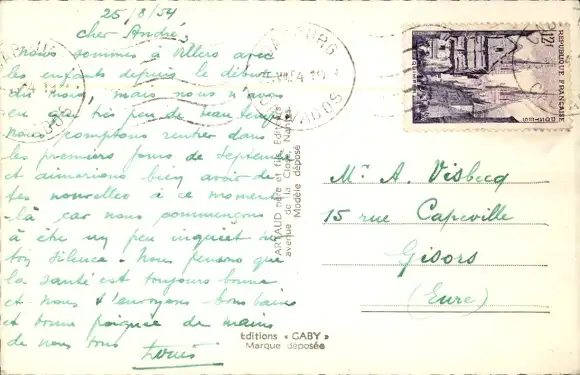 25/8/54
Cher André
Nous sommes à Villers avec
les enfants depuis le début
du mois, mais nous n'avons
eu que très peu de beau temps
Nous comptons rentrer dans
les premiers jours de Septembre
et aimerions bien avoir de
tes nouvelles à ce moment
-là car nous commençons
à être un peu inquiet de
ton silence. Nous pensons que
la santé est toujours bonne
et nous t'envoyons bons baisers
et bonne poignée de mains
de nous tous
Louis
CALVADOS
RÉPUBLIQUE FRANÇAISE
12f
ARTAUD père et fils, Éditeurs
avenue de la Close, Nantes
Modèle déposé
Mr A. Visbecq
15 rue Capeville
Gisors
(Eure)
Editions « GABY »
Marque déposée